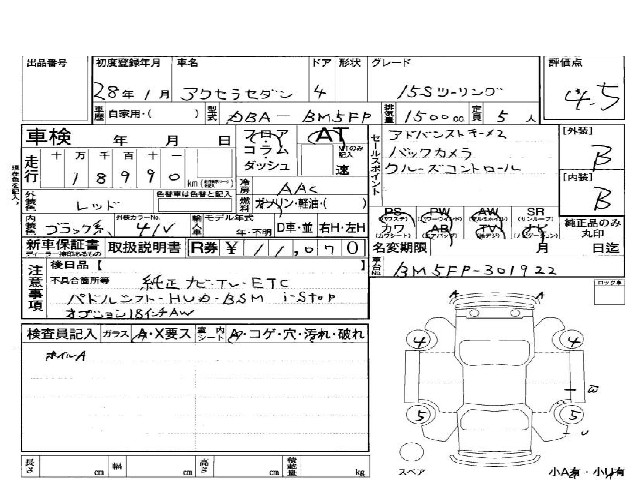 出品番号 初度登録年月 車名 ドア 形状 グレード 評価点
28年1月 アクセラセダン 4 15Sツーリング 4.5
車歴 自家用・( ) 型式 DBA-BM5FP 排気量 1500cc 定員 5人
車検 年 月 日 フロア コラム ダッシュ AT MTのみ記入 速
セールスポイント アドバンストキー×2
バックカメラ
クルーズコントロール
[外装] B
[内装] B
走行 十万千百十一
18990 km
冷房 AAC
外装色 レッド 色替車は色替と記入 燃料 ガソリン・軽油・( )
内装色 ブラック系 外装カラーNo. 41V 輸入車 モデル年式 年・不明 D車・並 右H・左H
PS PW AW SR
カワ AB TV ナビ
純正品のみ丸印
新車保証書 取扱説明書 R券 ¥11,070
名変期限 月 日迄
車台No. BM5FP-301922
注意事項 後日品【 】
不具合箇所等 純正ナビ-TV-ETC
パドルシフト-HUD-BSM i-stop
オプション18インチAW
ロック車
検査員記入 ガラス A・X要ス 室内シート A・コゲ・穴・汚れ・破れ
ホイルA
A A
4 4
5 5
スペア
小A有・小U有
長さ cm 幅 cm 高さ cm 積載量 kg